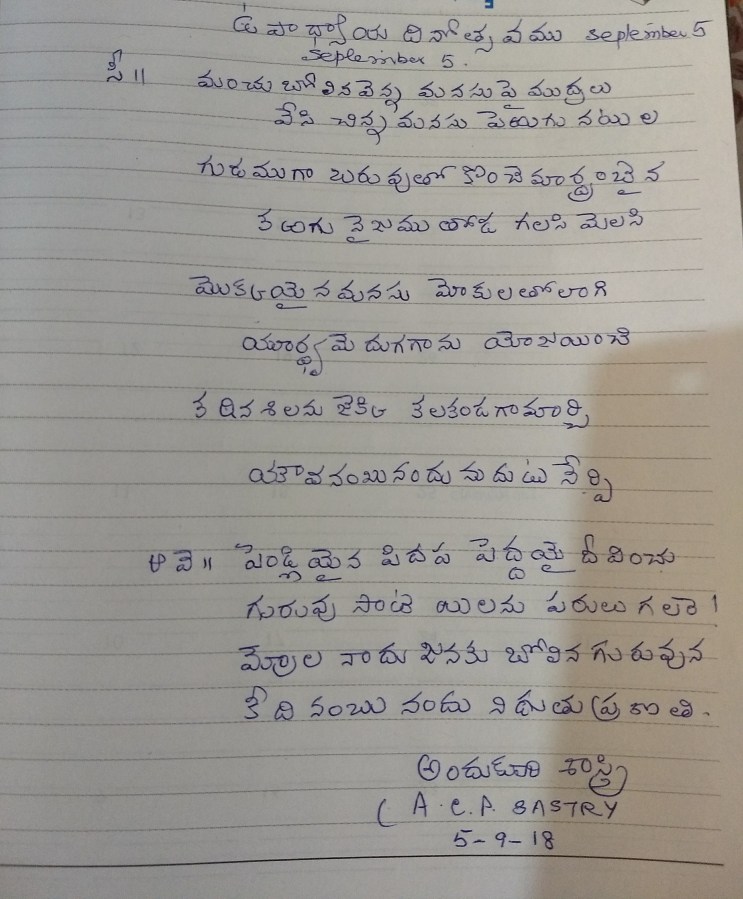 ఉపాధ్యాయ దినోత్సవము September 5
September 5.
సీ॥ మంచు బోలినవెన్న మనసుపై ముద్రలు
వేసి చిన్న మనసు పెఱుగునటుల
గురుముగా బరువుతో కొంచె మార్ద్రంబైన
తఱగు నైజము తోడ గలసి మెలసి
మొకఱయైనమనసు మోకులతోలాగి
యూర్ధ్వమెదుగగాను యోజయించె
కఠినశిలను జెకిఱి కలకండగామార్చి
యౌవనంబునందు నుదుట నేర్పి
ఆ వె॥ పెండ్లియైన పిదప పెద్దయై దీవించు
గురువు సాటి యిలను పరులు గలరా!
మ్రోల నాదు జనకు బోలిన గురువున
కీ దినంబు నందు నిడుతు ప్రణతి.
అందుకూరి శాస్త్రి
( A.C.P. SASTRY
5-9-18